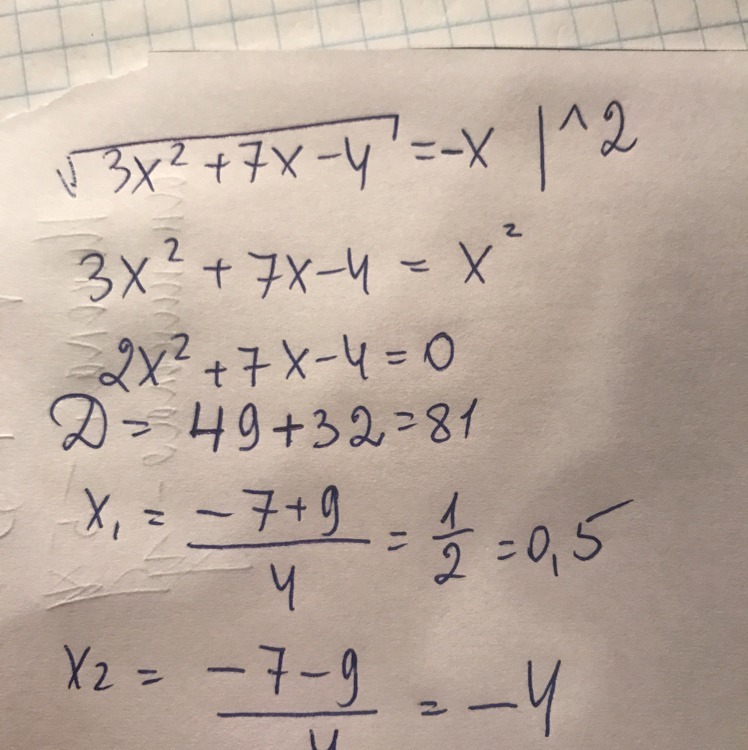 √(3x² + 7x - 4) = -x |^2
3x² + 7x - 4 = x²
2x² + 7x - 4 = 0
D = 49 + 32 = 81
x₁ = (-7 + 9)/4 = 1/2 = 0,5
x₂ = (-7 - 9)/4 = -4